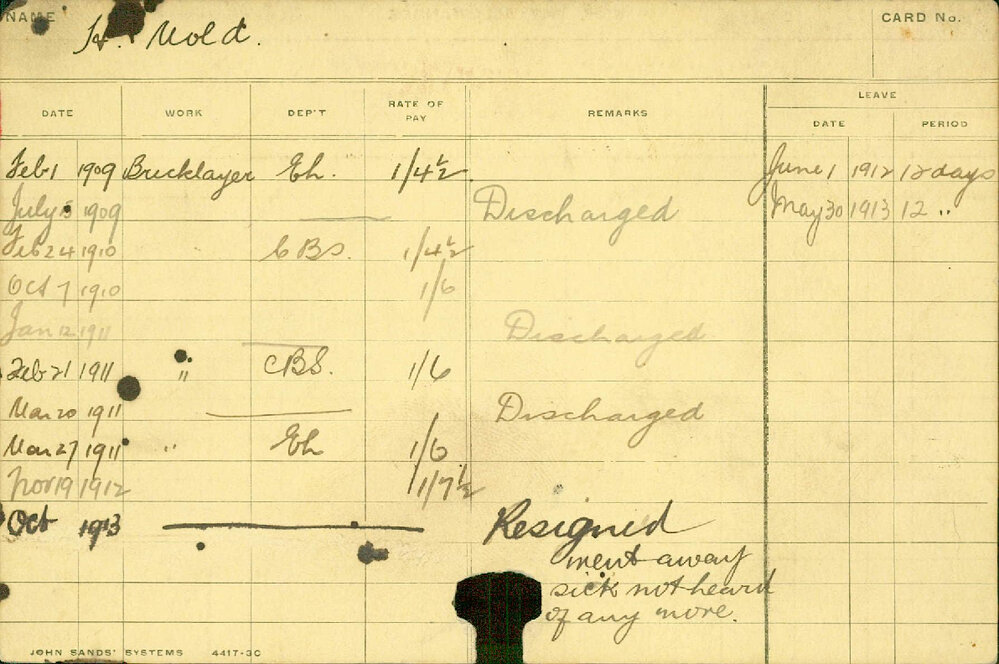 NAME H. Mold. CARD No.
LEAVE
DATE WORK DEP'T RATE OF PAY REMARKS DATE PERIOD
Feb 1 1909 Bricklayer Eh. 1/4½ June 1 1912 12 days
July 15 1909 Discharged May 30 1913 12 "
Feb 24 1910 CBS. 1/4½
Oct 7 1910 1/6
Jan 12 1911 Discharged
Feb 21 1911 " CBS. 1/6
Mar 20 1911 Discharged
Mar 27 1911 " Eh 1/6
Nov 19 1912 1/7½
Oct 1913 Resigned
went away
sick not heard
of any more.
JOHN SANDS' SYSTEMS 4417-3C